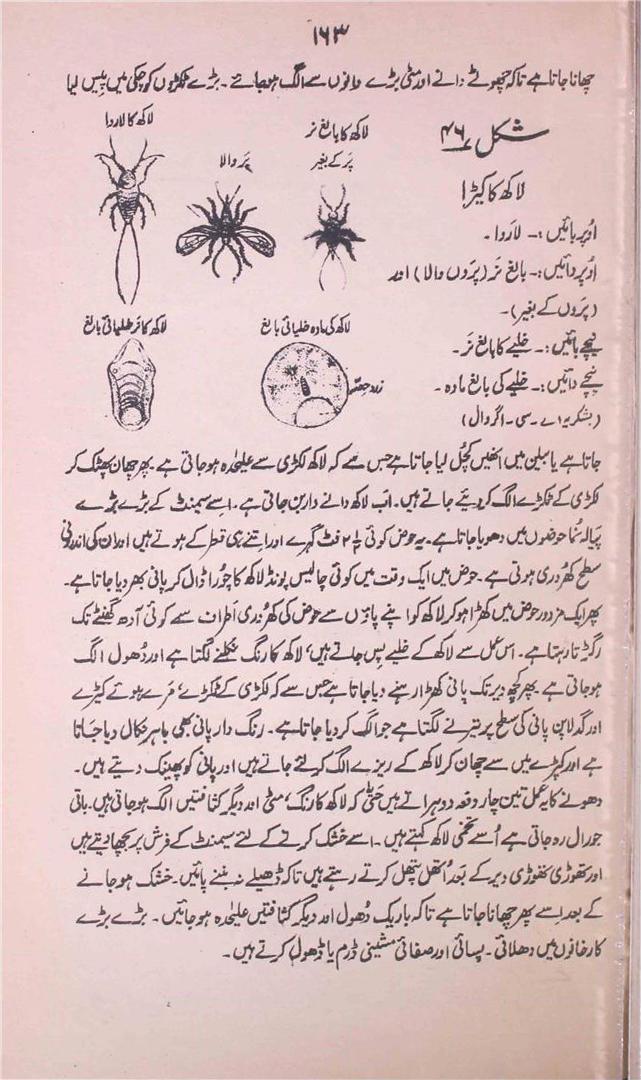 ۱۶۳
چھانا جاتا ہے تاکہ چھوٹے دانے اور مٹی بڑے دانوں سے الگ ہو جائے۔ بڑے ٹکڑوں کو چکی میں پیس لیا
شکل ۴۶
لاکھ کا کیڑا
اوپر بائیں:۔ لاروا۔
اوپر دائیں:۔ بالغ نر (پروں والا) اور
(پروں کے بغیر)۔
نیچے بائیں:۔ خلیے کا بالغ نر۔
نیچے دائیں:۔ خلیے کی بالغ مادہ۔
(بشکریہ اے۔ سی۔ اگروال)
لاکھ کا بالغ نر
پر کے بغیر
پر والا
لاکھ کا لاروا
لاکھ کی مادہ خلیاتی بالغ
زرد حصّہ
لاکھ کا نر خلیاتی بالغ
جاتا ہے یا سیلن میں انھیں کچل لیا جاتا ہے جس سے کہ لاکھ لکڑی سے علیحدہ ہو جاتی ہے۔ پھر چھان پھٹک کر
لکڑی کے ٹکڑے الگ کر دیئے جاتے ہیں۔ اب لاکھ دانے دار بن جاتی ہے۔ اسے سیمنٹ کے بڑے بڑے
پیالہ نما حوضوں میں دھویا جاتا ہے۔ یہ حوض کوئی ۲½ فٹ گہرے اور اتنے ہی قطر کے ہوتے ہیں اور ان کی اندرونی
سطح کھردری ہوتی ہے۔ حوض میں ایک وقت میں کوئی چالیس پونڈ لاکھ کا چورا ڈال کر پانی بھر دیا جاتا ہے۔
پھر ایک مزدور حوض میں کھڑا ہو کر لاکھ کو اپنے پاؤں سے حوض کی کھردری اطراف سے کوئی آدھ گھنٹے تک
رگڑتا رہتا ہے۔ اس عمل سے لاکھ کے خلیے پس جاتے ہیں، لاکھ کا رنگ نکلنے لگتا ہے اور دھول الگ
ہو جاتی ہے۔ پھر کچھ دیر تک پانی کھڑا رہنے دیا جاتا ہے جس سے کہ لکڑی کے ٹکڑے، مرے ہوئے کیڑے
اور گدلا پن پانی کی سطح پر تیرنے لگتا ہے جو الگ کر دیا جاتا ہے۔ رنگ دار پانی بھی باہر نکال دیا جاتا
ہے اور کپڑے میں سے چھان کر لاکھ کے ریزے الگ کر لئے جاتے ہیں اور پانی کو پھینک دیتے ہیں۔
دھونے کا یہ عمل تین چار دفعہ دوہراتے ہیں حتیٰ کہ لاکھ کا رنگ، مٹی اور دیگر کثافتیں الگ ہو جاتی ہیں۔ باقی
جو رال رہ جاتی ہے اُسے تخمی لاکھ کہتے ہیں۔ اسے خشک کرنے کے لئے سیمنٹ کے فرش پر بچھا دیتے ہیں
اور تھوڑی تھوڑی دیر کے بعد اُتھل پتھل کرتے رہتے ہیں تاکہ ڈھیلے نہ بننے پائیں۔ خشک ہو جانے
کے بعد اسے پھر چھانا جاتا ہے تاکہ باریک دھول اور دیگر کثافتیں علیحدہ ہو جائیں۔ بڑے بڑے
کارخانوں میں دھلائی۔ پسائی اور صفائی مشینی ڈرم یا ڈھول کرتے ہیں۔